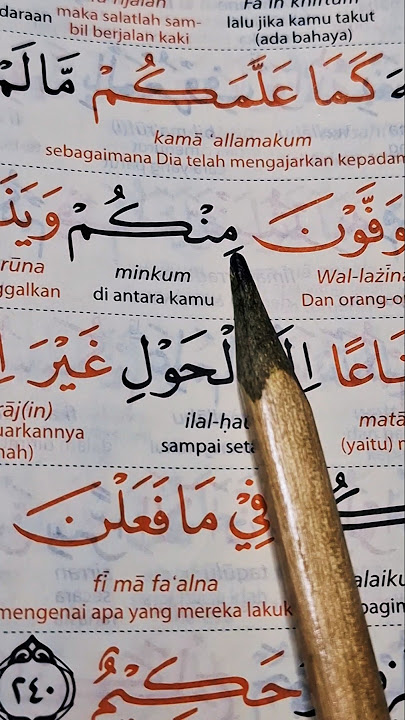 maka salatlah sam- lalu jika kamu takut
bil berjalan kaki (ada bahaya)
كَمَا عَلَّمَكُمْ مَّا لَمْ
kamā ‘allamakum
sebagaimana Dia telah mengajarkan kepadam
مِنْكُمْ
rūna minkum Wal-lażīna
ggalkan di antara kamu Dan orang-o
اِلَى الْحَوْلِ غَيْرَ
rāj(in) ilal-ḥau matā
uarkannya sampai seta (yaitu)
nah)
فِيْ مَا فَعَلْنَ
fī mā fa‘alna alaiku
mengenai apa yang mereka lakuk bagim
حَكِيْمٌ ٢٤٠